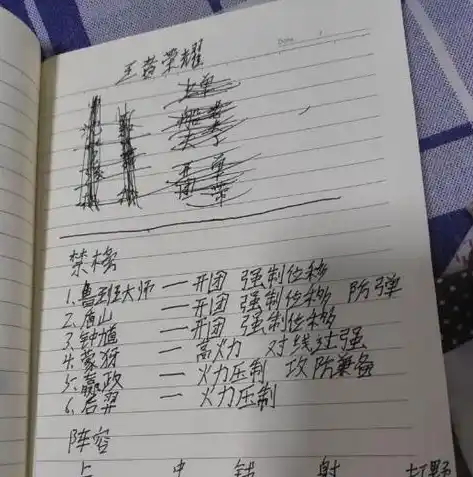 王者荣耀
Date
禁接
1.鲁班大师 — 开团 强制位移
2.盾山 — 开团 强制位移 防弹
3.钟馗 — 开团 强制位移
4.蒙犽 — 高火力 对线过强
5.嬴政 — 火力压制 攻防兼备
6.后羿 — 火力压制
阵容
上 中 辅 射 打野